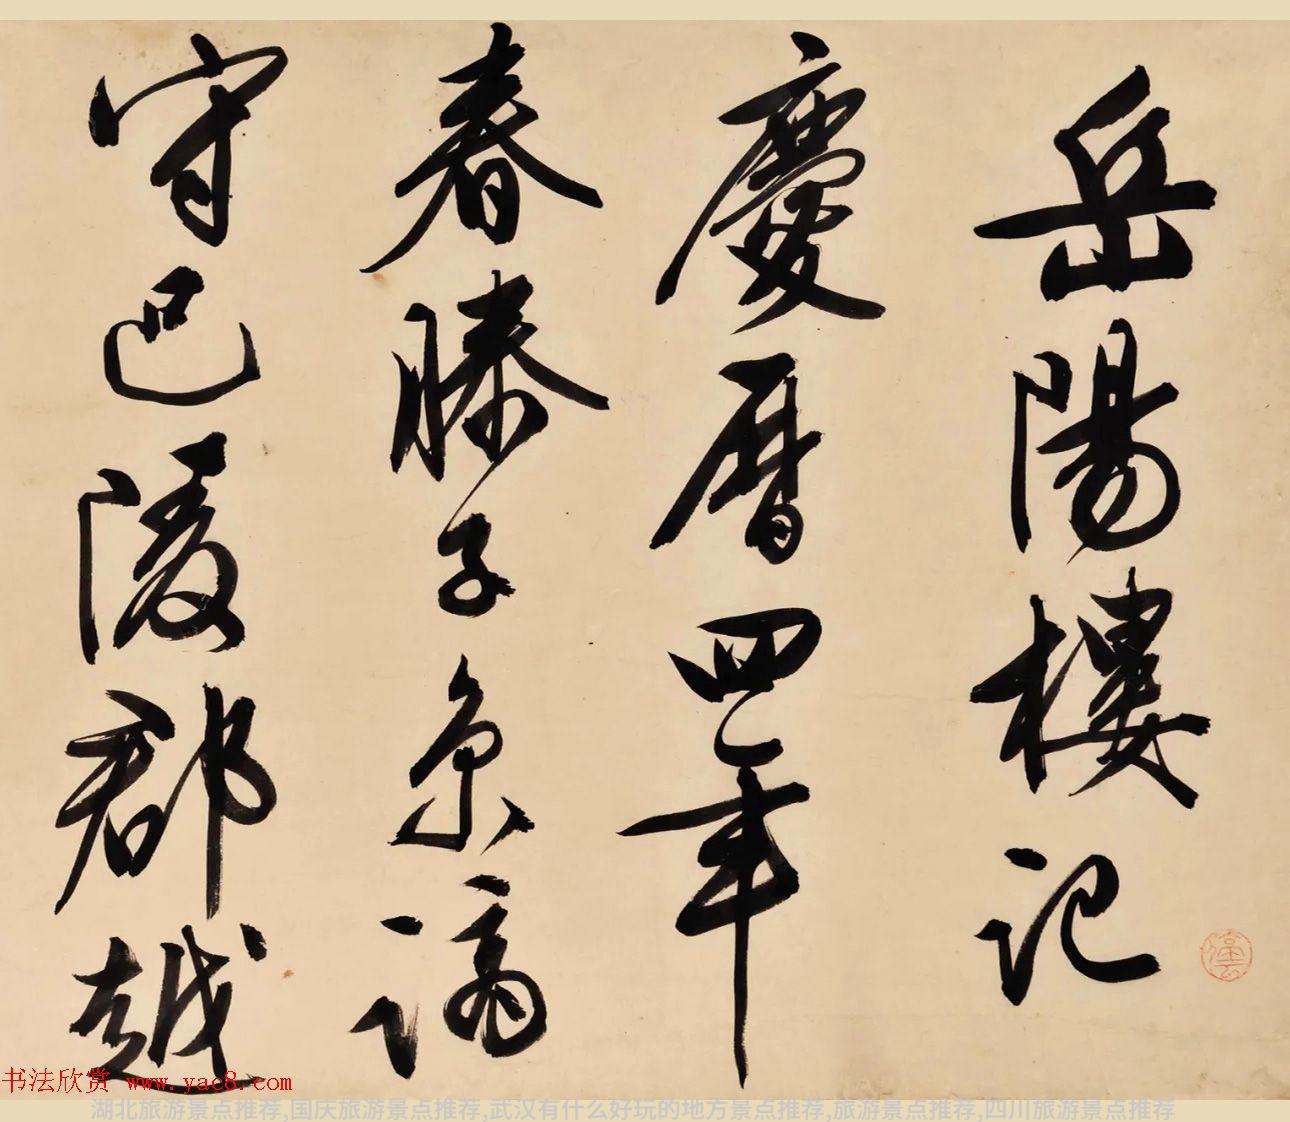 岳陽樓記
慶曆四年
春滕子京謫
守巴陵郡越
书法欣赏 www.yac8.com
湖北旅游景点推荐,国庆旅游景点推荐,武汉有什么好玩的地方景点推荐,旅游景点推荐,四川旅游景点推荐